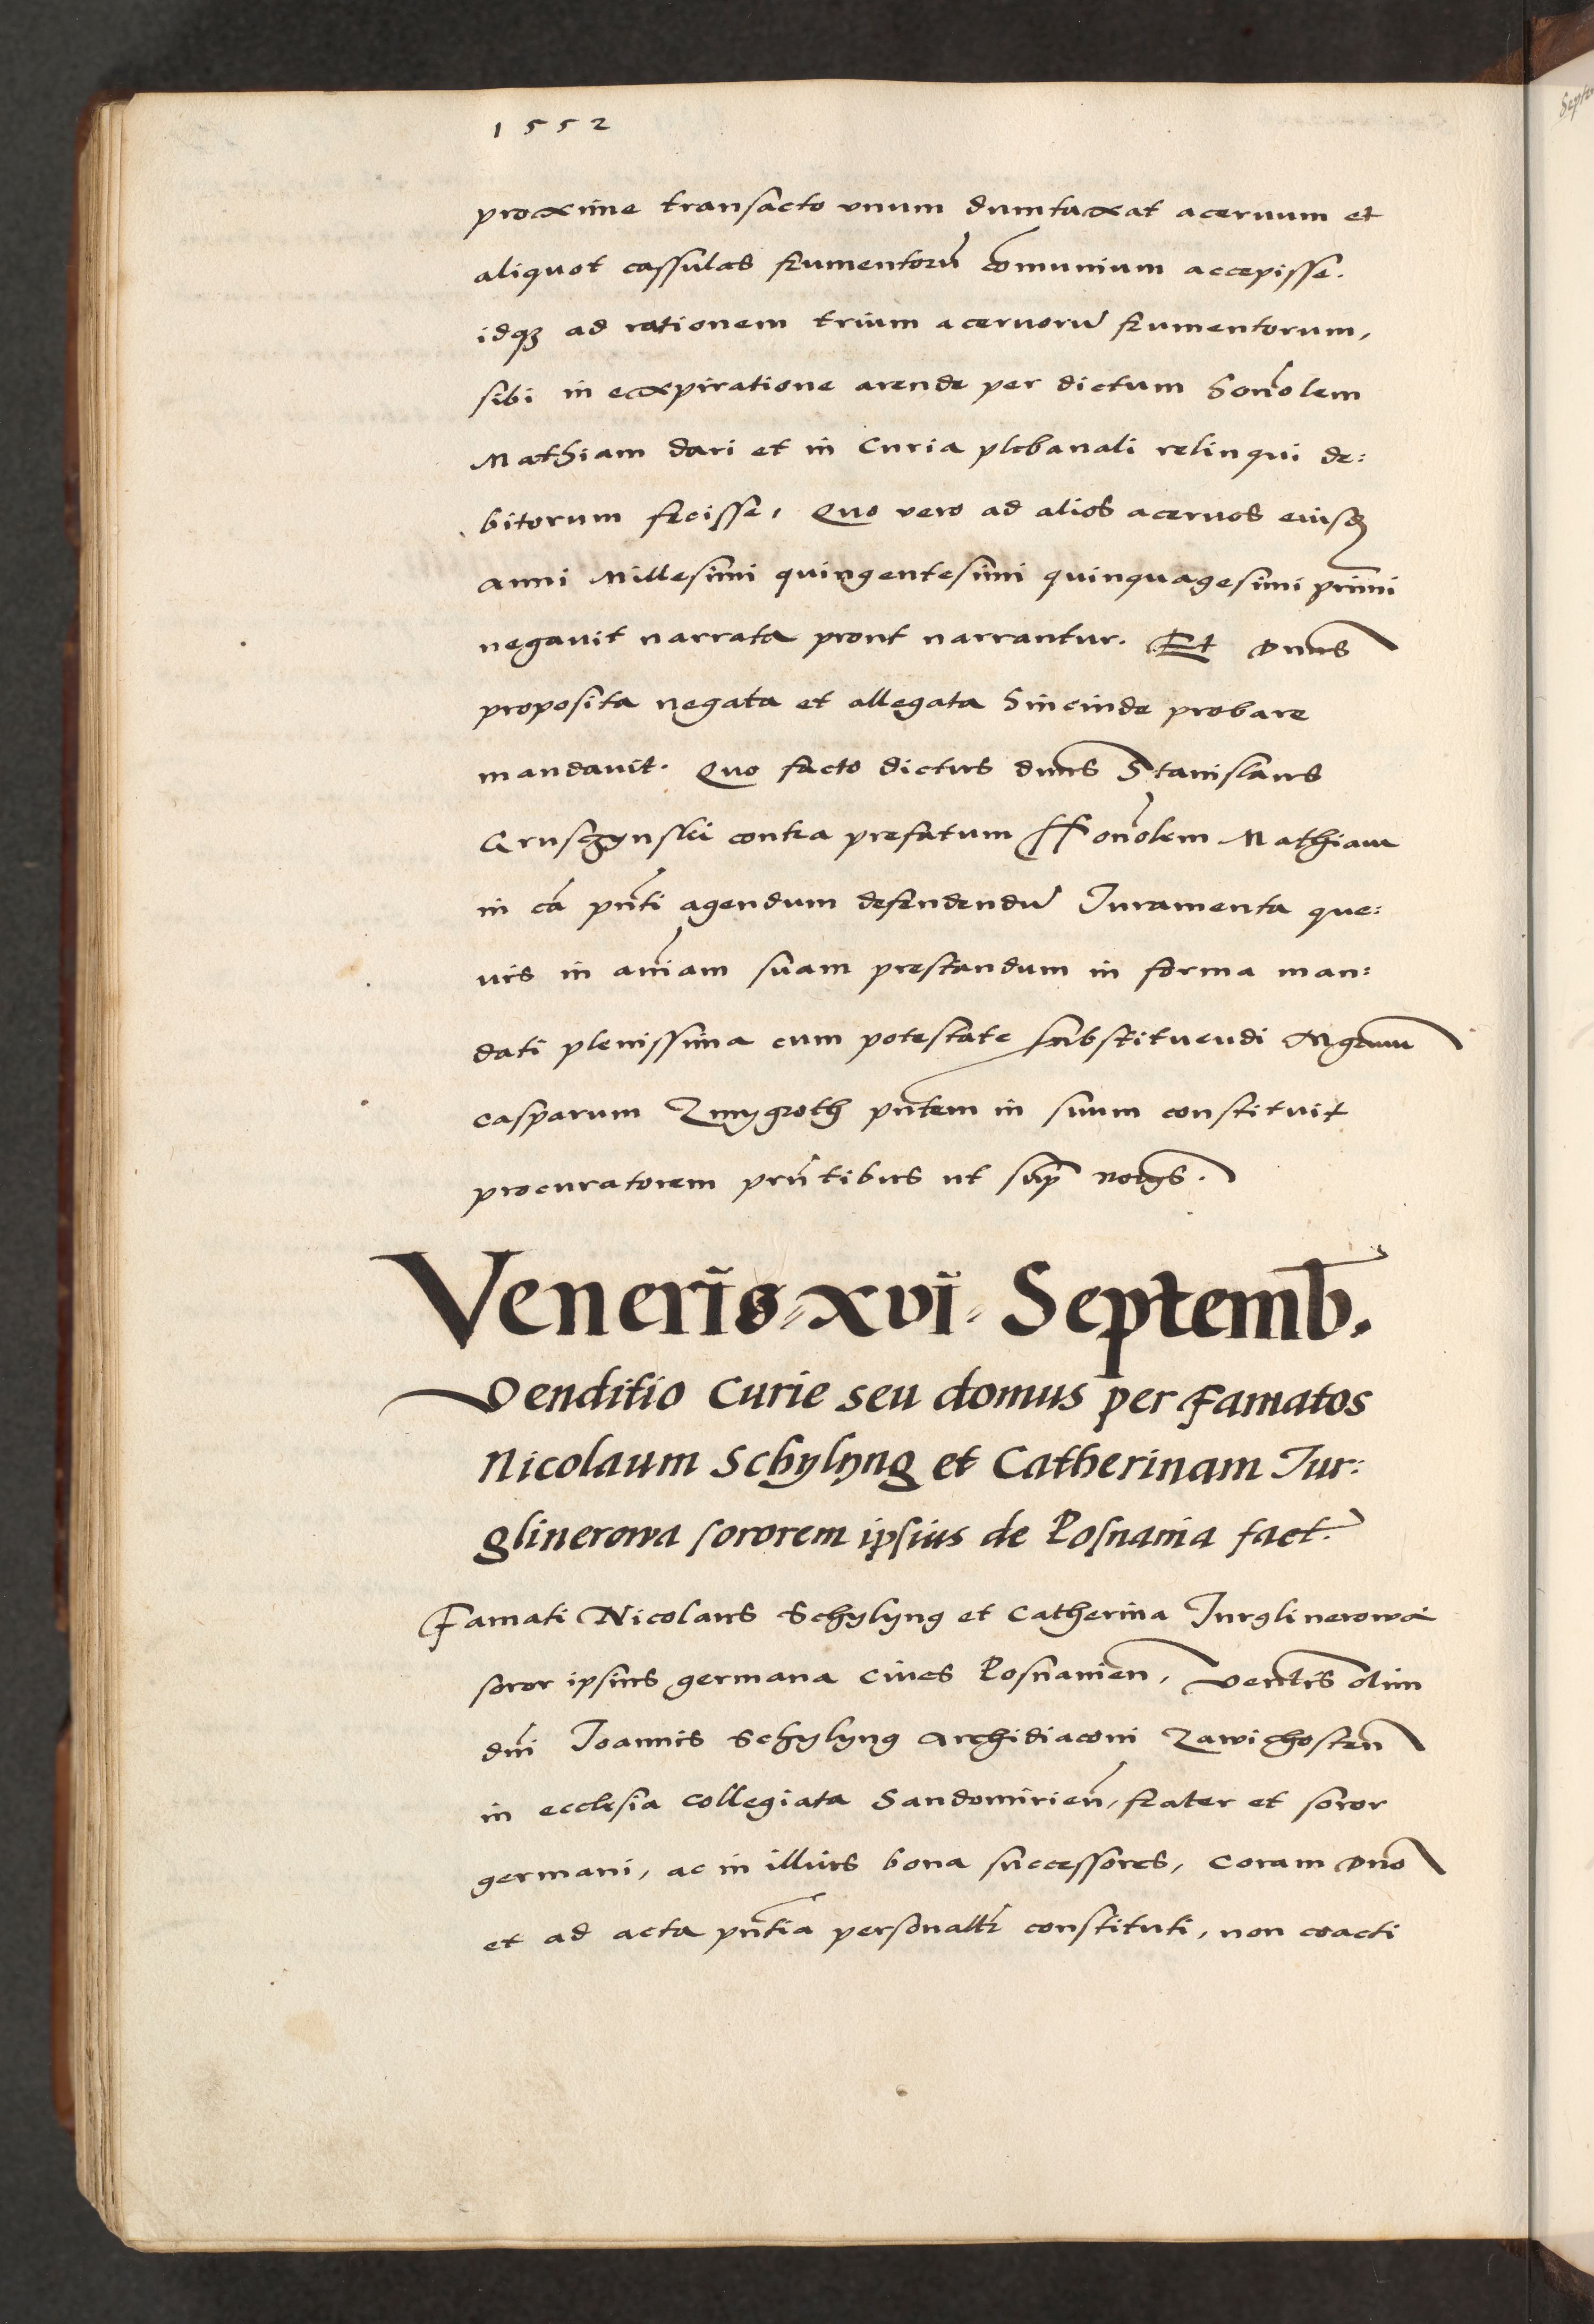 1552
proxime transacto vnum dumtaxat aceruum et
aliquot cassulas frumentorū cōmunium accepisse.
idqꝫ ad rationem trium aceruorū frumentorum,
sibi in expiratione arende per dictum honōlem
Mathiam dari et in Curia plebanali relinqui de:
bitorum fecisse, Quo vero ad alios aceruos eiusdꝫ
anni Millesimi quingentesimi quinquagesimi primi
negauit narrata prout narrantur. Et Dnns
proposita negata et allegata hincinde probare
mandauit. Quo facto dictus dnns Stanislaus
Gruschynski contra prefatum Honōlem Mathiam
in cā pn̄ti agendum defendendū Iuramenta que:
uis in aīam suam prestandum in forma man:
dati plenissima cum potestate substituendi Mgrum
Casparum Zmygroth pn̄tem in suum constituit
procuratorem pn̄tibus ut sup̄
Veneris xvi Septemb.
Venditio Curie seu domus per famatos
Nicolaum Schylyng et Catherinam Iur:
glinerowa sororem ipsius de Posnania fact.
Famati Nicolaus Schylyng et Catherina Iurglinerowa
soror ipsius germana Ciues Posnanien̄, olim
dn̄i Ioannis Schylyng Archidiaconi Zawichosten̄
in ecclesia Collegiata Sandomirien̄, frater et soror
germani, ac in illius bona successores, Coram Dno
et ad acta pn̄tia personalr̄ constituti, non coacti